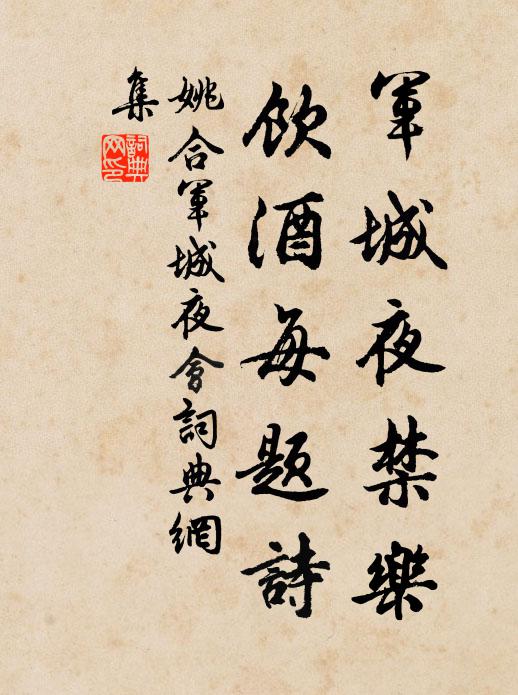 軍城夜禁樂
飲酒每題詩
姚合軍城夜會詞典網
集
詞典
网印